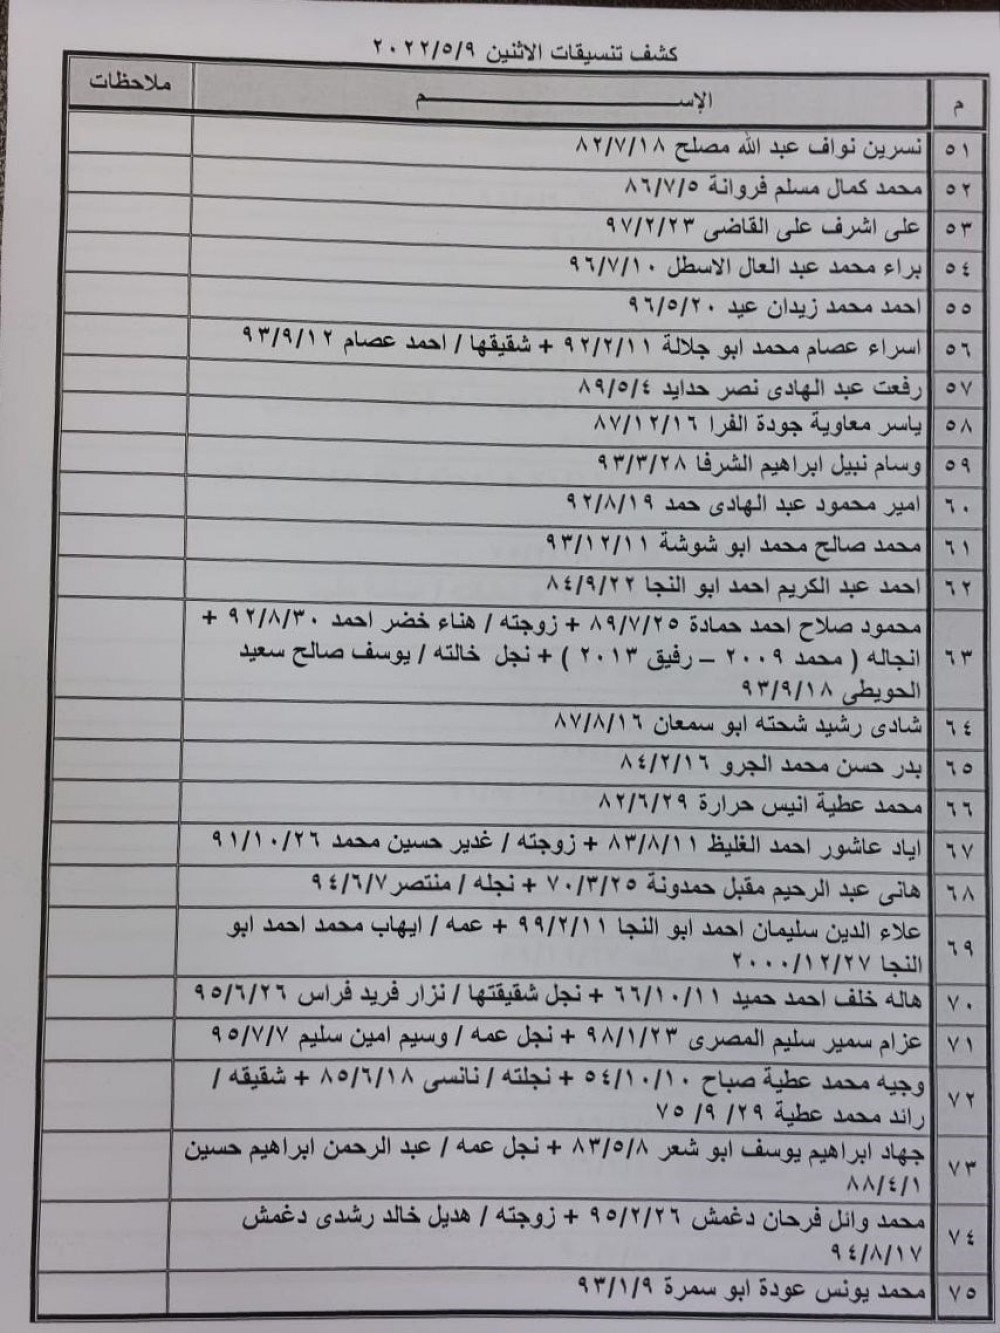 كشف تنسيقات الاثنين ٢٠٢٢/٥/٩
م الإســـــــــــم ملاحظات
٥١ نسرين نواف عبد الله مصلح ٨٢/٧/١٨
٥٢ محمد كمال مسلم فروانة ٨٦/٧/٥
٥٣ على اشرف على القاضى ٩٧/٢/٢٣
٥٤ براء محمد عبد العال الاسطل ٩٦/٧/١٠
٥٥ احمد محمد زيدان عيد ٩٦/٥/٢٠
٥٦ اسراء عصام محمد ابو جلالة ٩٢/٢/١١ + شقيقها / احمد عصام ٩٣/٩/١٢
٥٧ رفعت عبد الهادى نصر حدايد ٨٩/٥/٤
٥٨ ياسر معاوية جودة الفرا ٨٧/١٢/١٦
٥٩ وسام نبيل ابراهيم الشرفا ٩٣/٣/٢٨
٦٠ امير محمود عبد الهادى حمد ٩٢/٨/١٩
٦١ محمد صالح محمد ابو شوشة ٩٣/١٢/١١
٦٢ احمد عبد الكريم احمد ابو النجا ٨٤/٩/٢٢
٦٣ محمود صلاح احمد حمادة ٨٩/٧/٢٥ + زوجته / هناء خضر احمد ٩٢/٨/٣٠ +
انجاله ( محمد ٢٠٠٩ – رفيق ٢٠١٣ ) + نجل خالته / يوسف صالح سعيد
الحويطى ٩٣/٩/١٨
٦٤ شادى رشيد شحته ابو سمعان ٨٧/٨/١٦
٦٥ بدر حسن محمد الجرو ٨٤/٢/١٦
٦٦ محمد عطية انيس حرارة ٨٢/٦/٢٩
٦٧ اياد عاشور احمد الغليظ ٨٣/٨/١١ + زوجته / غدير حسين محمد ٩١/١٠/٢٦
٦٨ هانى عبد الرحيم مقبل حمدونة ٧٠/٣/٢٥ + نجله / منتصر ٩٤/٦/٧
٦٩ علاء الدين سليمان احمد ابو النجا ٩٩/٢/١١ + عمه / ايهاب محمد احمد ابو
النجا ٢٠٠٠/١٢/٢٧
٧٠ هاله خلف احمد حميد ٦٦/١٠/١١ + نجل شقيقتها / نزار فريد فراس ٩٥/٦/٢٦
٧١ عزام سمير سليم المصرى ٩٨/١/٢٣ + نجل عمه / وسيم امين سليم ٩٥/٧/٧
٧٢ وجيه محمد عطية صباح ٥٤/١٠/١٠ + نجلته / نانسى ٨٥/٦/١٨ + شقيقه /
رائد محمد عطية ٢٩/ ٩/ ٧٥
٧٣ جهاد ابراهيم يوسف ابو شعر ٨٣/٥/٨ + نجل عمه / عبد الرحمن ابراهيم حسين
٨٨/٤/١
٧٤ محمد وائل فرحان دغمش ٩٥/٢/٢٦ + زوجته / هديل خالد رشدى دغمش
٩٤/٨/١٧
٧٥ محمد يونس عودة ابو سمرة ٩٣/١/٩